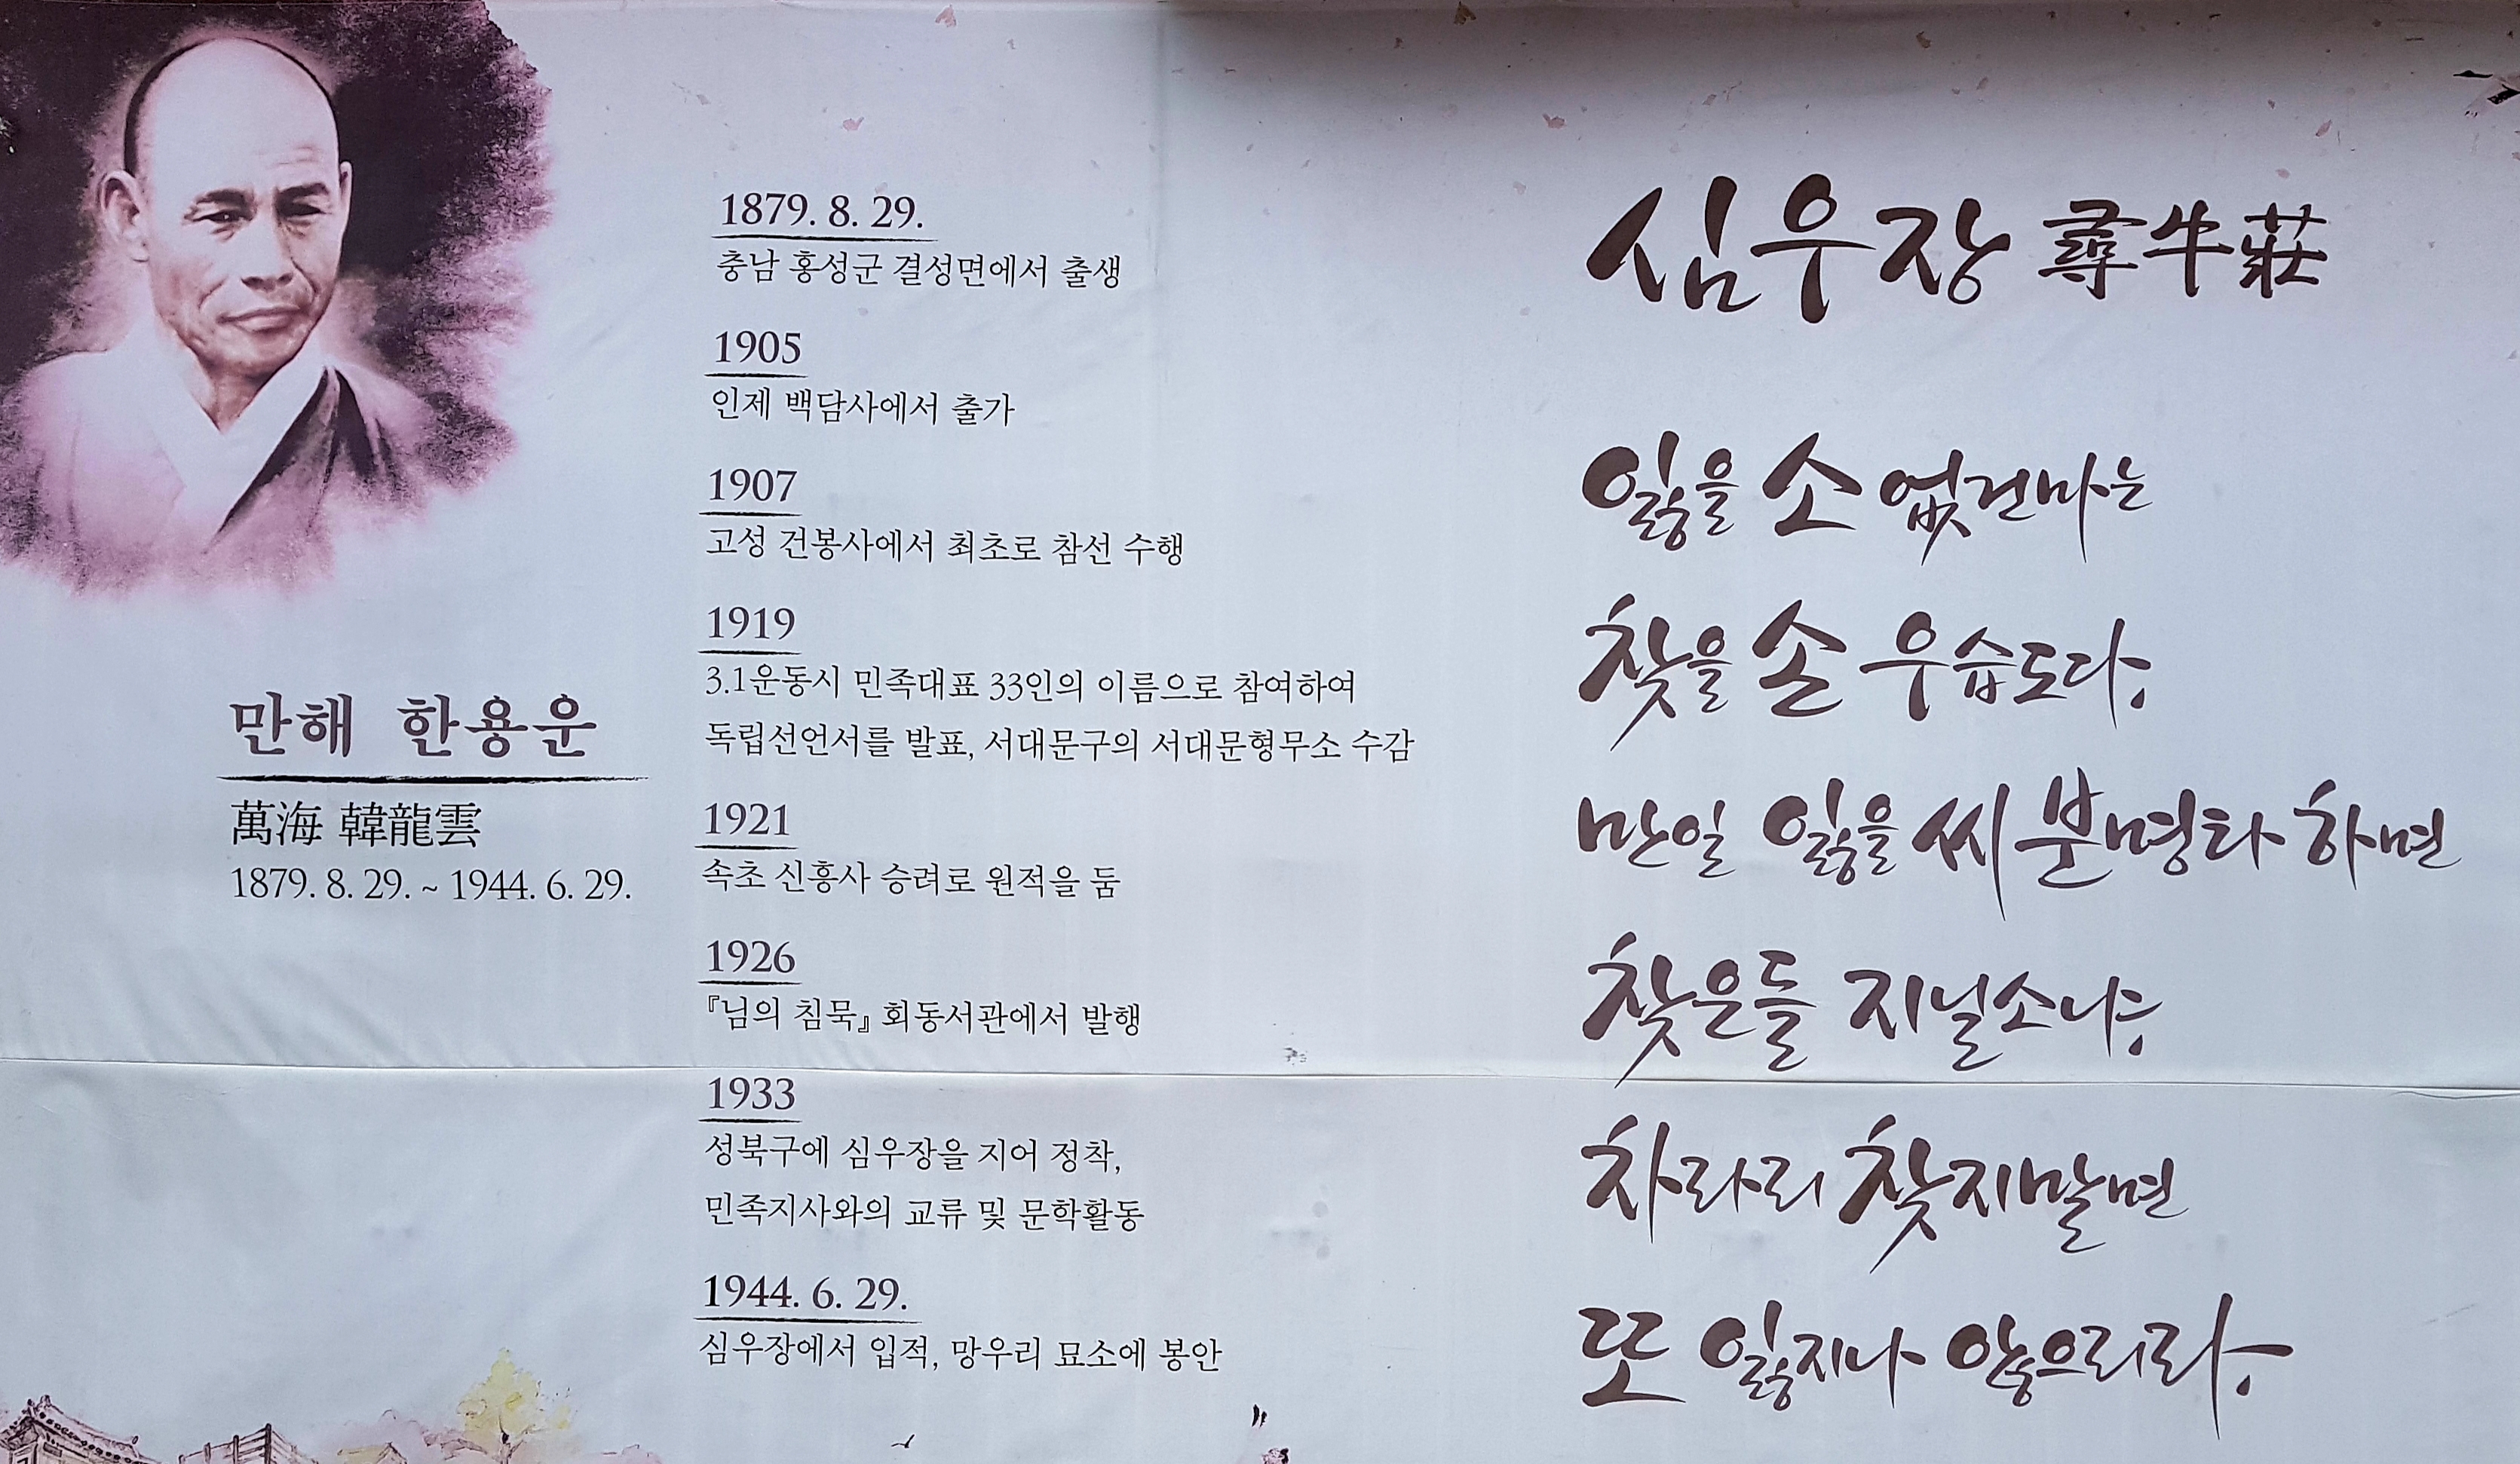 만해 한용운
萬海 韓龍雲
1879. 8. 29. ~ 1944. 6. 29.
1879. 8. 29.
충남 홍성군 결성면에서 출생
1905
인제 백담사에서 출가
1907
고성 건봉사에서 최초로 참선 수행
1919
3.1운동시 민족대표 33인의 이름으로 참여하여
독립선언서를 발표, 서대문구의 서대문형무소 수감
1921
속초 신흥사 승려로 원적을 둠
1926
『님의 침묵』 회동서관에서 발행
1933
성북구에 심우장을 지어 정착,
민족지사와의 교류 및 문학활동
1944. 6. 29.
심우장에서 입적, 망우리 묘소에 봉안
심우장 尋牛莊
잃을 소 없건마는
찾을 손 우습도다.
만일 잃을 씨 분명타 하면
찾은들 지닐소냐.
차라리 찾지말면
또 잃지나 않으리라.